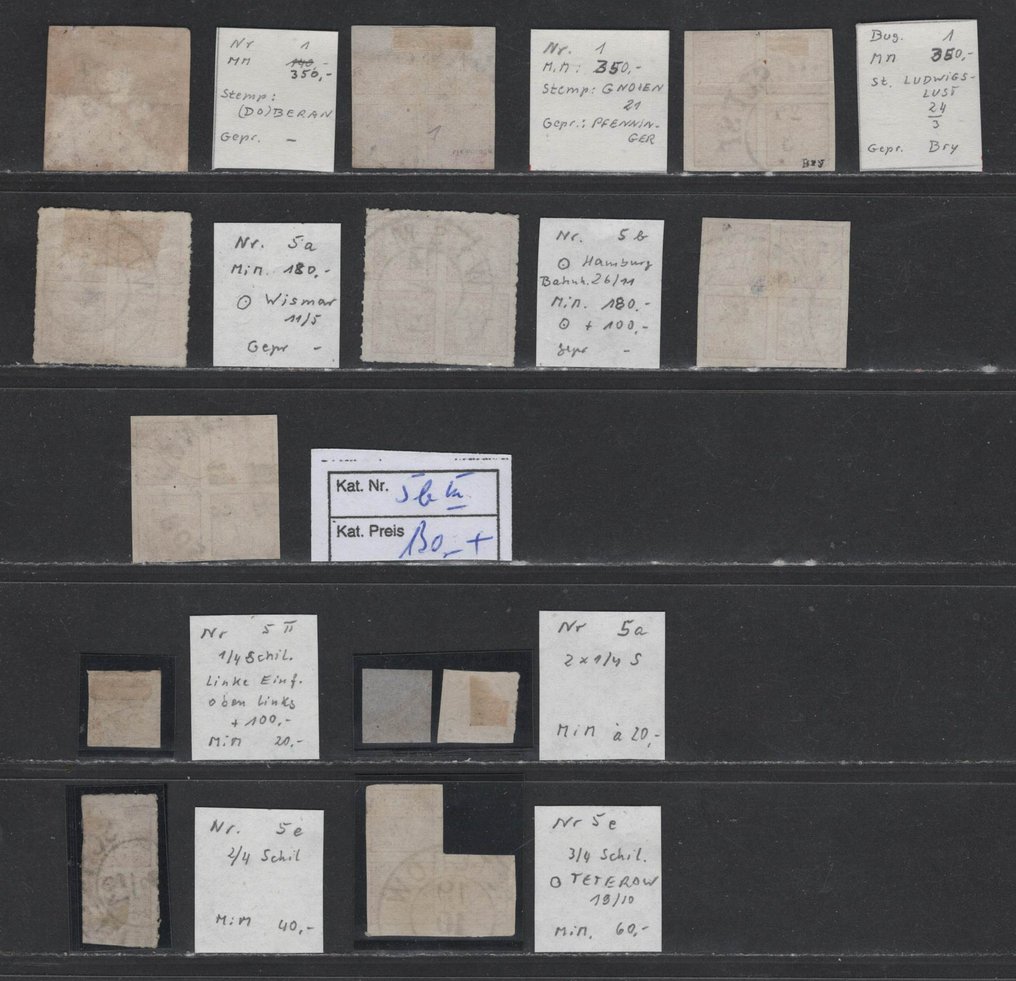 Nr 1
MM 140,-
350,-
Stemp:
(DO)BERAN
Gepr. -
1
Nr. 1
MiM: 350,-
Stemp: GNOIEN
21
Gepr.: PFENNIN-
GER
BRY
Bug. 1
MM 350,-
St. LUDWIGS-
LUST
24
3
Gepr. Bry
Nr. 5a
MiM. 180,-
ʘ Wismar
11/5
Gepr -
Nr. 5b
ʘ Hamburg
Bahnh. 26/11
MiM. 180.-
ʘ + 100,-
gepr -
Kat. Nr. 5b
Kat. Preis 130,- +
Nr 5 II
1/4 Schil.
Linke Einf.
oben links
+ 100,-
MiM 20,-
Nr 5a
2 x 1/4 S
MiM à 20,-
Nr. 5e
2/4 Schil
MiM 40,-
Nr 5e
3/4 Schil.
ʘ TETEROW
19/10
MiM. 60,-